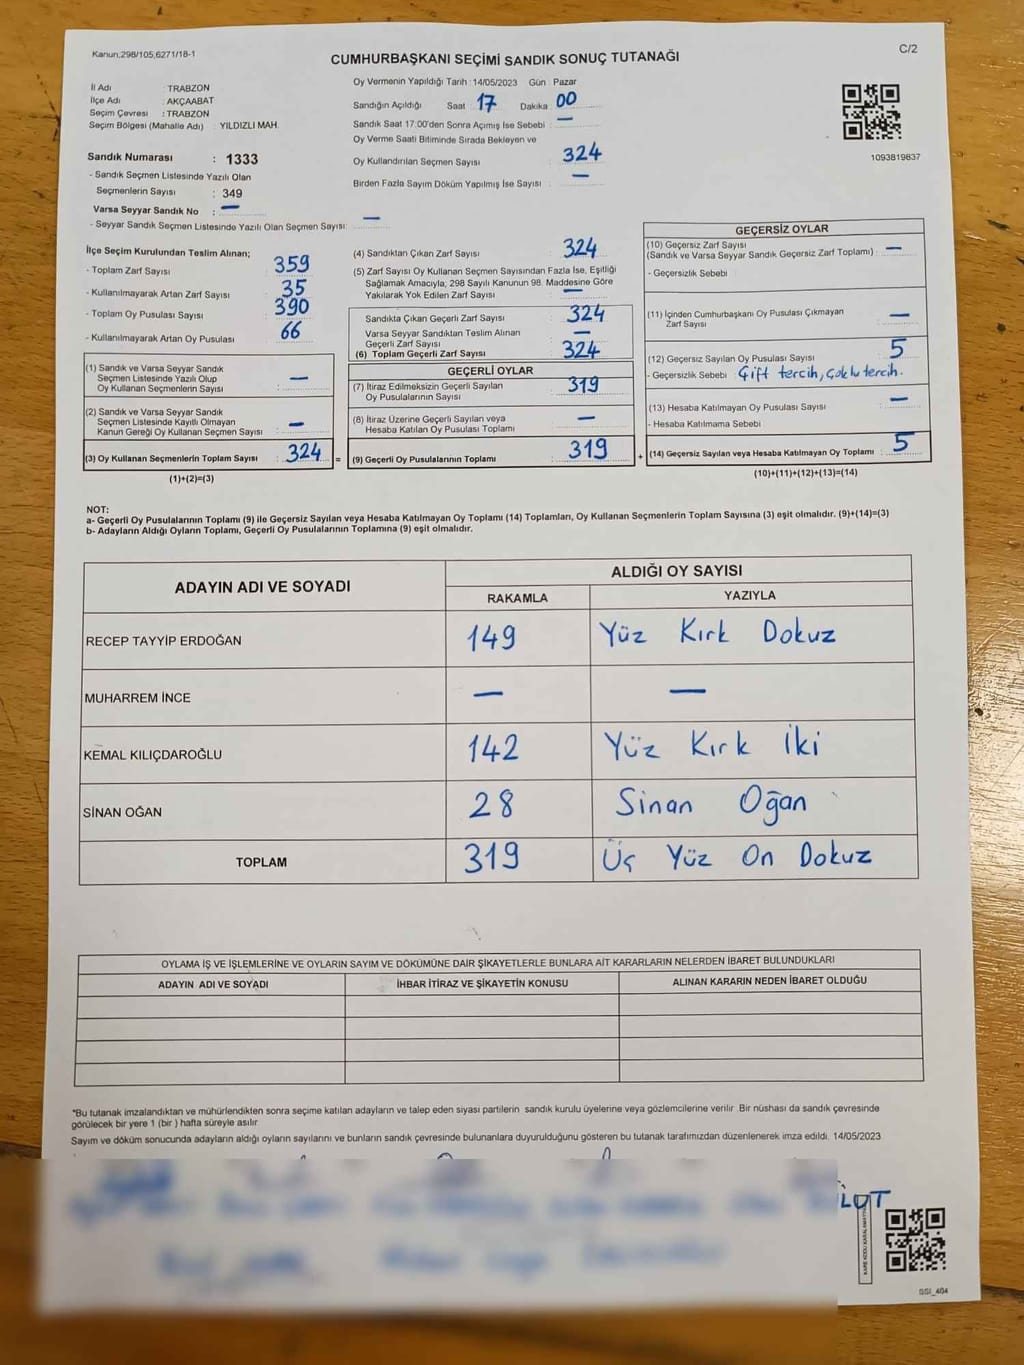 Kanun;298/105,6271/18-1
C/2
CUMHURBAŞKANI SEÇİMİ SANDIK SONUÇ TUTANAĞI
İl Adı : TRABZON
İlçe Adı : AKÇAABAT
Seçim Çevresi : TRABZON
Seçim Bölgesi (Mahalle Adı) : YILDIZLI MAH.
Sandık Numarası : 1333
- Sandık Seçmen Listesinde Yazılı Olan
Seçmenlerin Sayısı : 349
Varsa Seyyar Sandık No : —
- Seyyar Sandık Seçmen Listesinde Yazılı Olan Seçmen Sayısı: —
Oy Vermenin Yapıldığı Tarih : 14/05/2023 Gün : Pazar
Sandığın Açıldığı Saat 17 Dakika 00
Sandık Saat 17:00'den Sonra Açımış İse Sebebi : —
Oy Verme Saati Bitiminde Sırada Bekleyen ve
Oy Kullandırılan Seçmen Sayısı : 324
Birden Fazla Sayım Döküm Yapılmış İse Sayısı : —
1093819837
İlçe Seçim Kurulundan Teslim Alınan;
- Toplam Zarf Sayısı : 359
- Kullanılmayarak Artan Zarf Sayısı : 35
- Toplam Oy Pusulası Sayısı : 390
- Kullanılmayarak Artan Oy Pusulası : 66
(1) Sandık ve Varsa Seyyar Sandık
Seçmen Listesinde Yazılı Olup
Oy Kullanan Seçmenlerin Sayısı : —
(2) Sandık ve Varsa Seyyar Sandık
Seçmen Listesinde Kayıtlı Olmayan
Kanun Gereği Oy Kullanan Seçmen Sayısı : —
(3) Oy Kullanan Seçmenlerin Toplam Sayısı : 324 =
(1)+(2)=(3)
(4) Sandıktan Çıkan Zarf Sayısı : 324
(5) Zarf Sayısı Oy Kullanan Seçmen Sayısından Fazla İse, Eşitliği
Sağlamak Amacıyla; 298 Sayılı Kanunun 98. Maddesine Göre
Yakılarak Yok Edilen Zarf Sayısı : —
Sandıkta Çıkan Geçerli Zarf Sayısı : 324
Varsa Seyyar Sandıktan Teslim Alınan
Geçerli Zarf Sayısı : —
(6) Toplam Geçerli Zarf Sayısı : 324
GEÇERLİ OYLAR
(7) İtiraz Edilmeksizin Geçerli Sayılan
Oy Pusulalarının Sayısı : 319
(8) İtiraz Üzerine Geçerli Sayılan veya
Hesaba Katılan Oy Pusulası Toplamı : —
(9) Geçerli Oy Pusulalarının Toplamı : 319 +
GEÇERSİZ OYLAR
(10) Geçersiz Zarf Sayısı
(Sandık ve Varsa Seyyar Sandık Geçersiz Zarf Toplamı) : —
- Geçersizlik Sebebi
(11) İçinden Cumhurbaşkanı Oy Pusulası Çıkmayan
Zarf Sayısı : —
(12) Geçersiz Sayılan Oy Pusulası Sayısı : 5
- Geçersizlik Sebebi Çift tercih, Çoklu tercih.
(13) Hesaba Katılmayan Oy Pusulası Sayısı : —
- Hesaba Katılmama Sebebi
(14) Geçersiz Sayılan veya Hesaba Katılmayan Oy Toplamı : 5
(10)+(11)+(12)+(13)=(14)
NOT:
a- Geçerli Oy Pusulalarının Toplamı (9) ile Geçersiz Sayılan veya Hesaba Katılmayan Oy Toplamı (14) Toplamları, Oy Kullanan Seçmenlerin Toplam Sayısına (3) eşit olmalıdır. (9)+(14)=(3)
b- Adayların Aldığı Oyların Toplamı, Geçerli Oy Pusulalarının Toplamına (9) eşit olmalıdır.
ADAYIN ADI VE SOYADI ALDIĞI OY SAYISI
RAKAMLA YAZIYLA
RECEP TAYYİP ERDOĞAN 149 Yüz Kırk Dokuz
MUHARREM İNCE — —
KEMAL KILIÇDAROĞLU 142 Yüz Kırk İki
SİNAN OĞAN 28 Sinan Oğan
TOPLAM 319 Üç Yüz On Dokuz
OYLAMA İŞ VE İŞLEMLERİNE VE OYLARIN SAYIM VE DÖKÜMÜNE DAİR ŞİKAYETLERLE BUNLARA AİT KARARLARIN NELERDEN İBARET BULUNDUKLARI
ADAYIN ADI VE SOYADI İHBAR İTİRAZ VE ŞİKAYETİN KONUSU ALINAN KARARIN NEDEN İBARET OLDUĞU
*Bu tutanak imzalandıktan ve mühürlendikten sonra seçime katılan adayların ve talep eden siyasi partilerin sandık kurulu üyelerine veya gözlemcilerine verilir. Bir nüshası da sandık çevresinde
görülecek bir yere 1 (bir ) hafta süreyle asılır
Sayım ve döküm sonucunda adayların aldığı oyların sayılarını ve bunların sandık çevresinde bulunanlara duyurulduğunu gösteren bu tutanak tarafımızdan düzenlenerek imza edildi. 14/05/2023
LUT
GSI_404